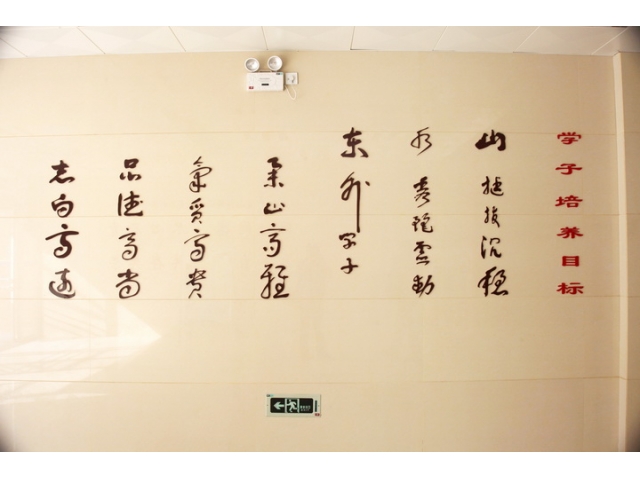 学子培养目标
山 挺拔沉稳
水 灵動
东外学子
举止高雅
氣质高贵
品德高尚
志向高远